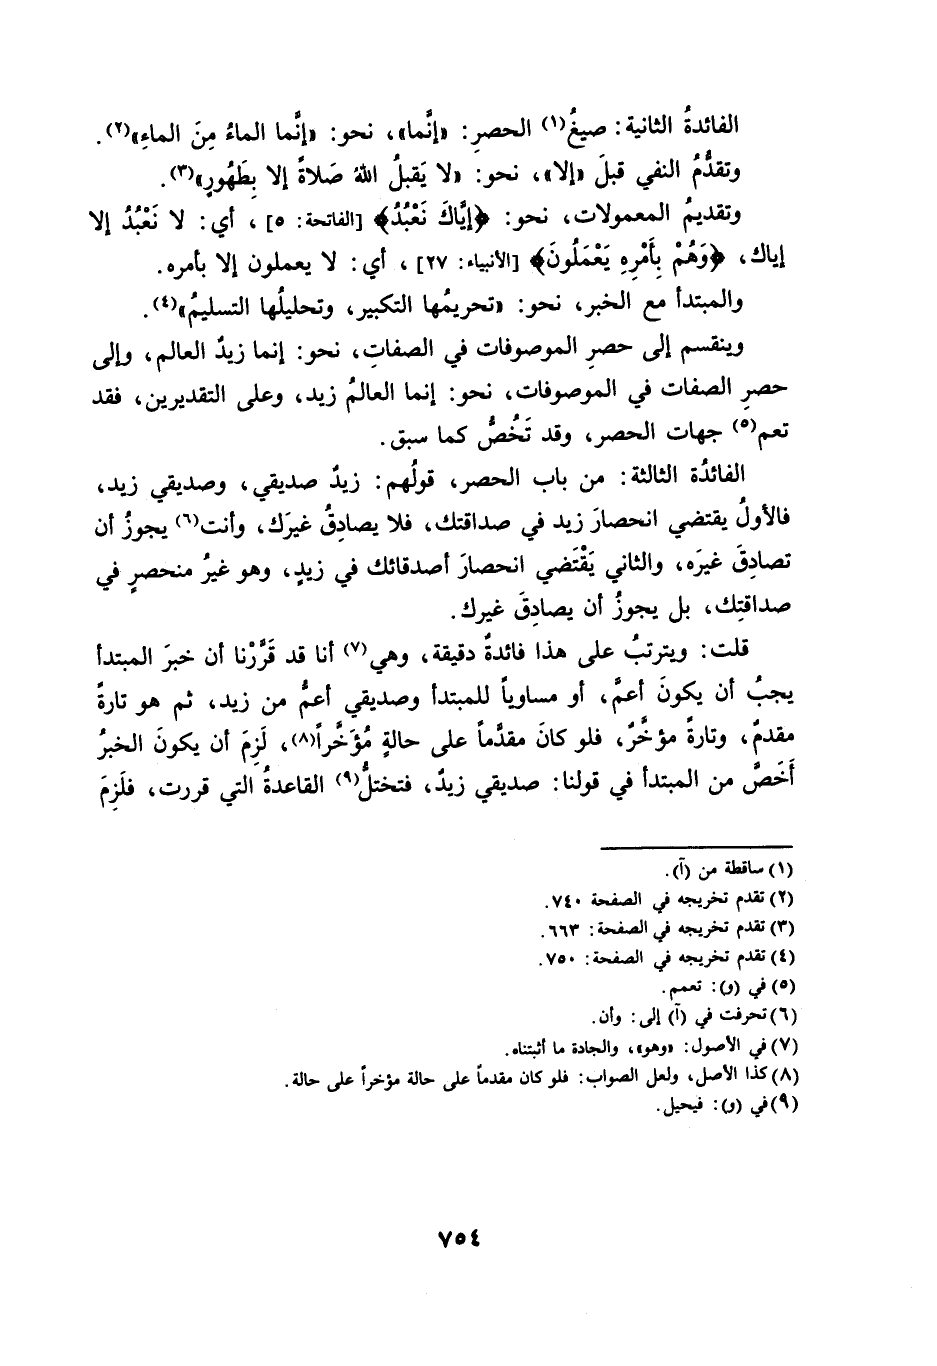 الفائدةُ الثانية: صيغُ(١) الحصرِ: «إنَّما»، نحو: «إنَّما الماءُ مِنَ الماءِ»(٢).
وتقدُّمُ النفي قبلَ «إلا»، نحو: «لا يَقبلُ اللهُ صَلاةً إلا بِطَهُورٍ»(٣).
وتقديمُ المعمولات، نحو: ﴿إيَّاكَ نَعْبُدُ﴾ [الفاتحة: ٥]، أي: لا نَعْبُدُ إلا
إياك، ﴿وَهُمْ بِأَمْرِهِ يَعْمَلُونَ﴾ [الأنبياء: ٢٧]، أي: لا يعملون إلا بأمره.
والمبتدأ مع الخبر، نحو: «تحريمُها التكبير، وتحليلُها التسليمُ»(٤).
وينقسم إلى حصرِ الموصوفات في الصفاتِ، نحو: إنما زيدٌ العالم، وإلى
حصرِ الصفات في الموصوفات، نحو: إنما العالمُ زيد، وعلى التقديرين، فقد
تعم(٥) جهات الحصر، وقد تَخُصُّ كما سبق.
الفائدُة الثالثة: من باب الحصر، قولُهم: زيدٌ صديقي، وصديقي زيد،
فالأولُ يقتضي انحصارَ زيد في صداقتك، فلا يصادِقُ غيرَك، وأنت(٦) يجوزُ أن
تصادِقَ غيرَه، والثاني يَقْتَضي انحصارَ أصدقائك في زيدٍ، وهو غيرُ منحصرٍ في
صداقتِك، بل يجوزُ أن يصادِقَ غيرك.
قلت: ويترتبُ على هذا فائدةٌ دقيقة، وهي(٧) أنا قد قَرَّرْنا أن خبرَ المبتدأ
يجبُ أن يكونَ أعمَّ، أو مساوياً للمبتدأ وصديقي أعمُّ من زيد، ثم هو تارةً
مقدمٌ، وتارةً مؤخَّرٌ، فلو كانَ مقدَّماً على حالةٍ مُؤخَّراً(٨)، لَزِمَ أن يكونَ الخبرُ
أَخَصَّ من المبتدأ في قولنا: صديقي زيدٌ، فتختلُّ(٩) القاعدةُ التي قررت، فلَزِمَ
(١) ساقطة من (آ).
(٢) تقدم تخريجه في الصفحة ٧٤٠.
(٣) تقدم تخريجه في الصفحة: ٦٦٣.
(٤) تقدم تخريجه في الصفحة: ٧٥٠.
(٥) في (و): تعمم.
(٦) تحرفت في (آ) إلى: وأن.
(٧) في الأصول: «وهو»، والجادة ما أثبتناه.
(٨) كذا الأصل، ولعل الصواب: فلو كان مقدماً على حالة مؤخراً على حالة.
(٩) في (و): فيحيل.
٧٥٤